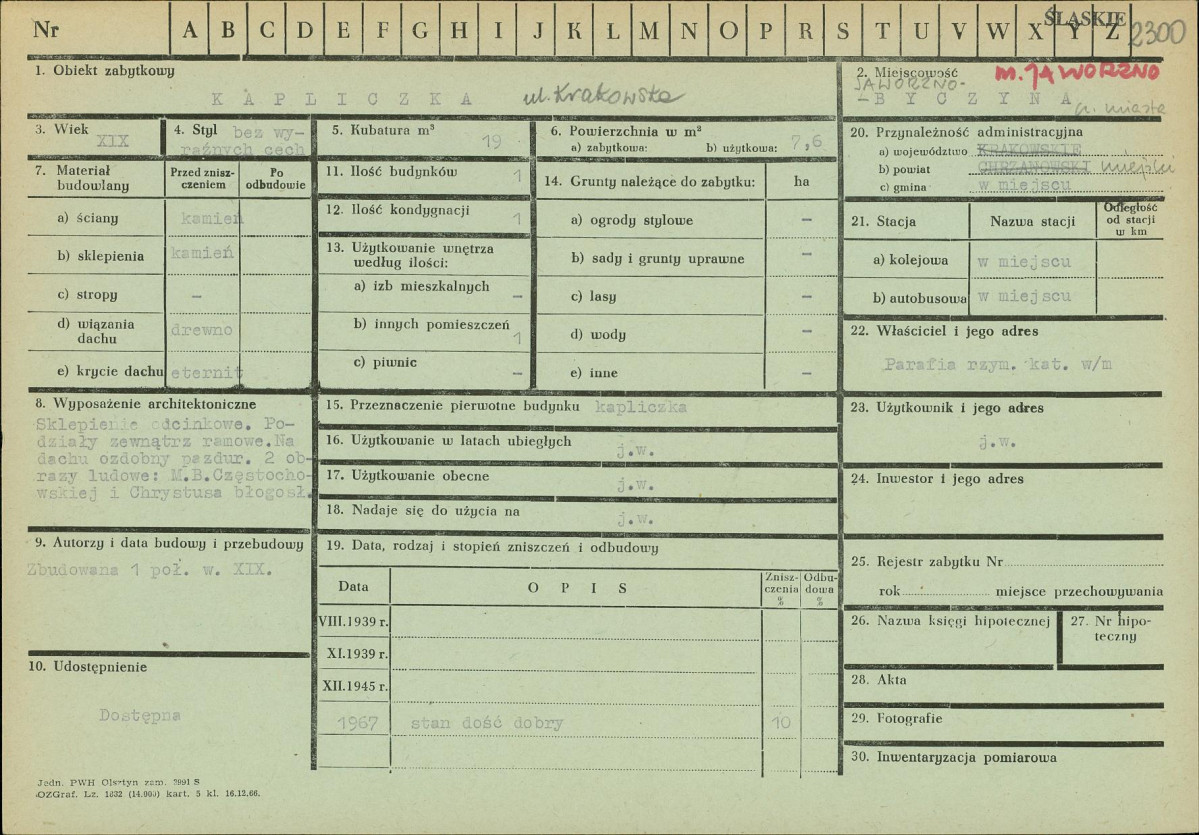 Nr A B C D E F G H I J K L M N O P R S T U V W X Y Z
ŚLĄSKIE
2300
1. Obiekt zabytkowy
KAPLICZKA ul. Krakowska
2. Miejscowość
m. JAWORZNO
JAWORZNO-
-BYCZYNA
3. Wiek
XIX
4. Styl bez wy-
raźnych cech
5. Kubatura m³
19
6. Powierzchnia w m²
a) zabytkowa: b) użytkowa: 7,6
7. Materiał
budowlany
Przed znisz-
czeniem
Po
odbudowie
a) ściany kamień
b) sklepienia kamień
c) stropy –
d) wiązania
dachu drewno
e) krycie dachu eternit
8. Wyposażenie architektoniczne
Sklepienie odcinkowe. Po-
działy zewnątrz ramowe.Na
dachu ozdobny pazdur. 2 ob-
razy ludowe: M.B.Częstocho-
wskiej i Chrystusa błogosł.
9. Autorzy i data budowy i przebudowy
Zbudowana 1 poł. w. XIX.
10. Udostępnienie
Dostępna
11. Ilość budynków 1
12. Ilość kondygnacji 1
13. Użytkowanie wnętrza
według ilości:
a) izb mieszkalnych –
b) innych pomieszczeń 1
c) piwnic –
14. Grunty należące do zabytku: ha
a) ogrody stylowe –
b) sady i grunty uprawne –
c) lasy –
d) wody –
e) inne –
15. Przeznaczenie pierwotne budynku kapliczka
16. Użytkowanie w latach ubiegłych j.w.
17. Użytkowanie obecne j.w.
18. Nadaje się do użycia na j.w.
19. Data, rodzaj i stopień zniszczeń i odbudowy
Data OPIS
Znisz-
czenia
%
Odbu-
dowa
%
VIII.1939 r.
XI.1939 r.
XII.1945 r.
1967 stan dość dobry 10
20. Przynależność administracyjna
a) województwo KRAKOWSKIE
b) powiat CHRZANOWSKI miejski
c) gmina w miejscu
21. Stacja Nazwa stacji
Odległość
od stacji
w km
a) kolejowa w miejscu
b) autobusowa w miejscu
22. Właściciel i jego adres
Parafia rzym. kat. w/m
23. Użytkownik i jego adres
j.w.
24. Inwestor i jego adres
25. Rejestr zabytku Nr
rok miejsce przechowywania
26. Nazwa księgi hipotecznej
27. Nr hipo-
teczny
28. Akta
29. Fotografie
30. Inwentaryzacja pomiarowa
Jedn. PWH Olsztyn zam. 2991 S
OZGraf. Lz. 1632 (14.000) kart. 5 kl. 16.12.66.